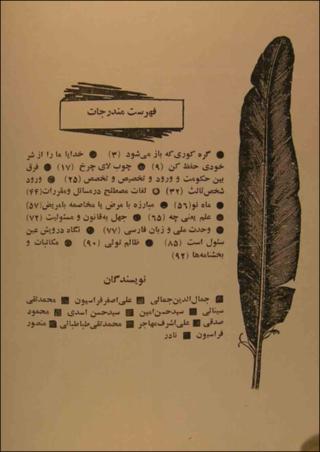 فهرست مندرجات
● گره کوری که باز می‌شود (۳) ● خدایا ما را از شر
خودی حفظ کن (۹) ● چوب لای چرخ (۱۷) ● فرق
بین حکومت و ورود و تخصیص و تخصص (۲۵) ● ورود
شخص ثالث (۳۲) ● لغات مصطلح در مسائل و مقررات (۴۴)
● ماه نو (۵۶) ● مبارزه با مرض یا مخاصمه با مریض (۵۷)
● علم یعنی چه (۶۵) ● جهل به قانون و مسئولیت (۷۲)
● وحدت ملی و زبان فارسی (۷۷) ● نگاه درویش عین
سئول است (۸۵) ● ظالم تولی (۹۰) ● مکاتبات و
بخشنامه‌ها (۹۲)
نویسندگان
■ جمال‌الدین جمالی ■ علی‌اصغر فراسیون ■ محمدتقی
سینائی ■ سیدحسن امین ■ سیدحسن اسدی ■ محمود
صدقی ■ علی‌اشرف مهاجر ■ محمدتقی طباطبائی ■ منصور
فراسیون ■ نادر